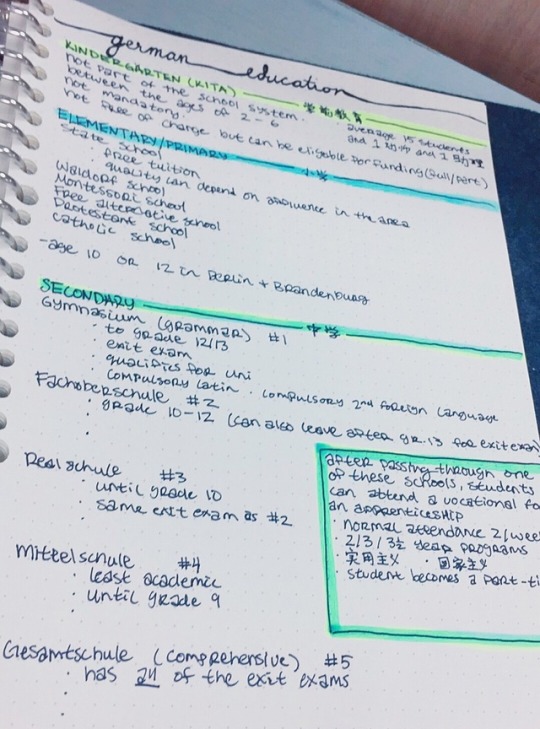 german education
KINDERGARTEN (KITA) 学前教育
not part of the school system.
between the ages of 2-6
not mandatory.
not free of charge but can be eligible for funding (full/part)
· average 15 students
and 1 and 1
ELEMENTARY/PRIMARY 小学
State school
· free tuition
· quality can depend on affluence in the area
Waldorf school
Montessori school
Free alternative school
Protestant school
Catholic school
-age 10 OR 12 in Berlin + Brandenburg
SECONDARY 中学
Gymnasium (grammar) #1
· to grade 12/13
· exit exam
· qualifies for uni
· compulsory Latin · compulsory 2nd foreign language
Fachoberschule #2
· grade 10-12 (can also leave after gr.13 for exit exam)
Realschule #3
· until grade 10
· same exit exam as #2
Mittelschule #4
· least academic
· until grade 9
Gesamtschule (comprehensive) #5
· has all of the exit exams
after passing through one
of these schools, students
can attend a vocational fo
an apprenticeship
· normal attendance 2/wee
· 2/3/3½ year programs
· 实用主义 · 国家主义
· student becomes a part-ti